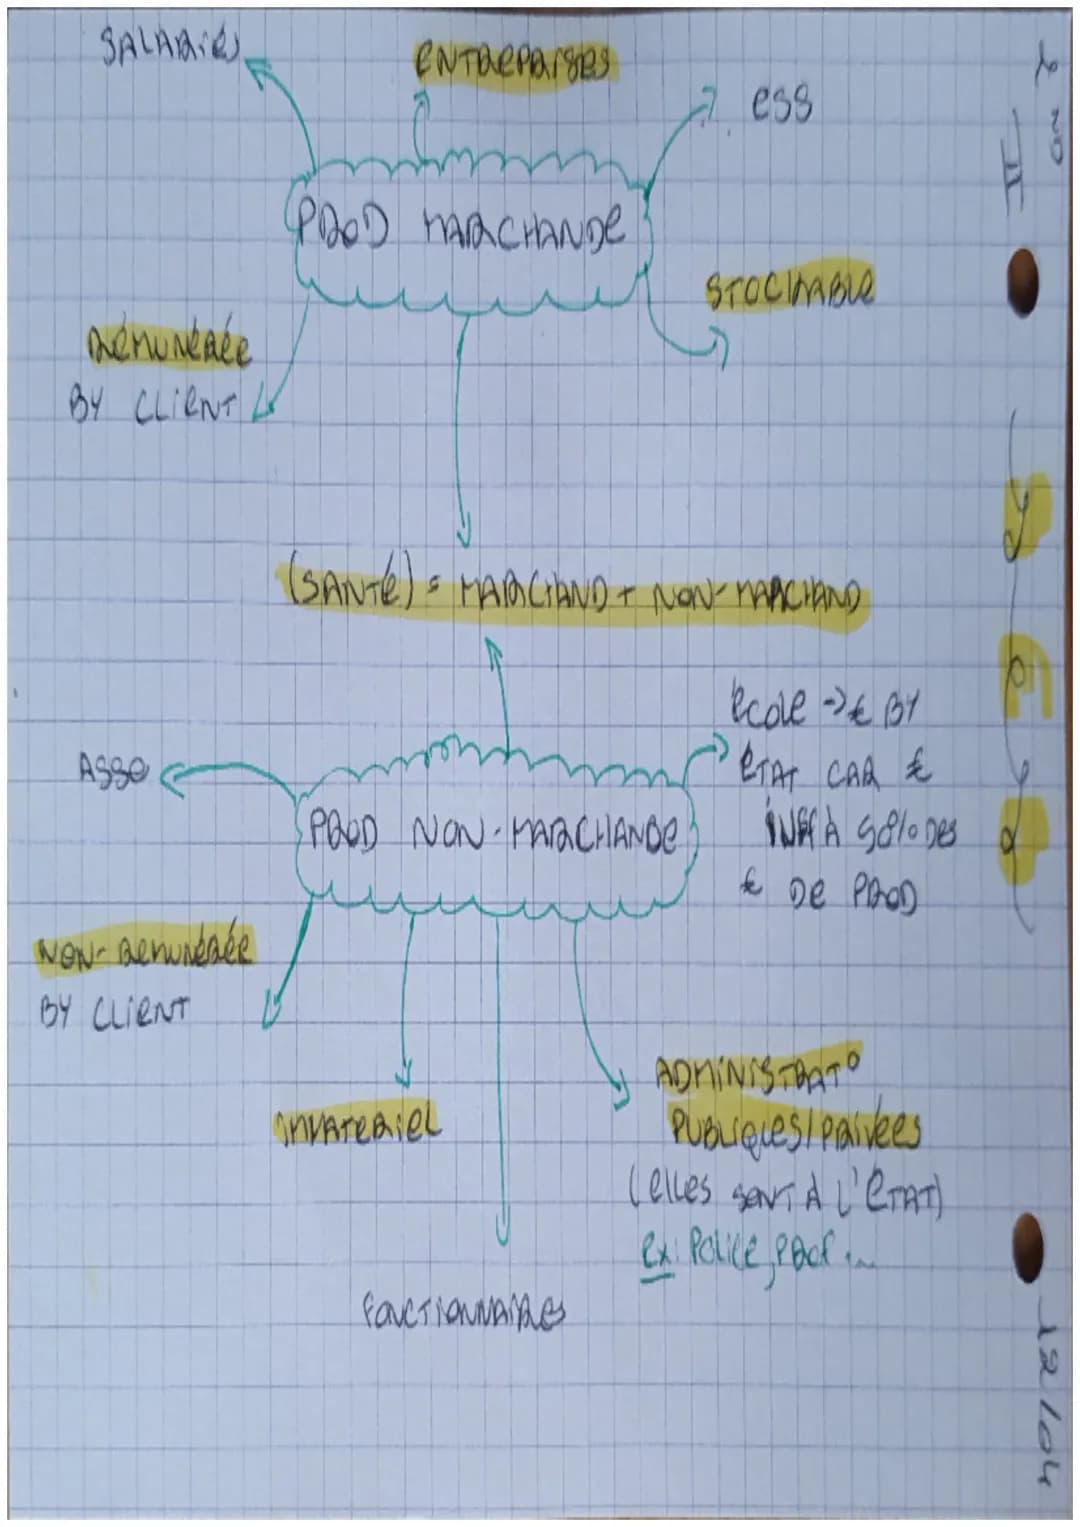 SALARIÉS
ENTREPRISES
ESS
PROD MARCHANDE
STOCKABLE
RÉMUNÉRÉE
BY CLIENT
(SANTÉ) = MARCHAND + NON-MARCHAND
école -> € BY
ÉTAT CAR €
INF À 50% DES
€ DE PROD
ASSO
PROD NON-MARCHANDE
NON-REMUNÉRÉE
BY CLIENT
IMMATERIEL
ADMINISTRAT°
PUBLIQUES/PRIVÉES
(elles SONT À L'ÉTAT)
ex: Police, PROF...
FONCTIONNAIRES
2ND
II
12/04